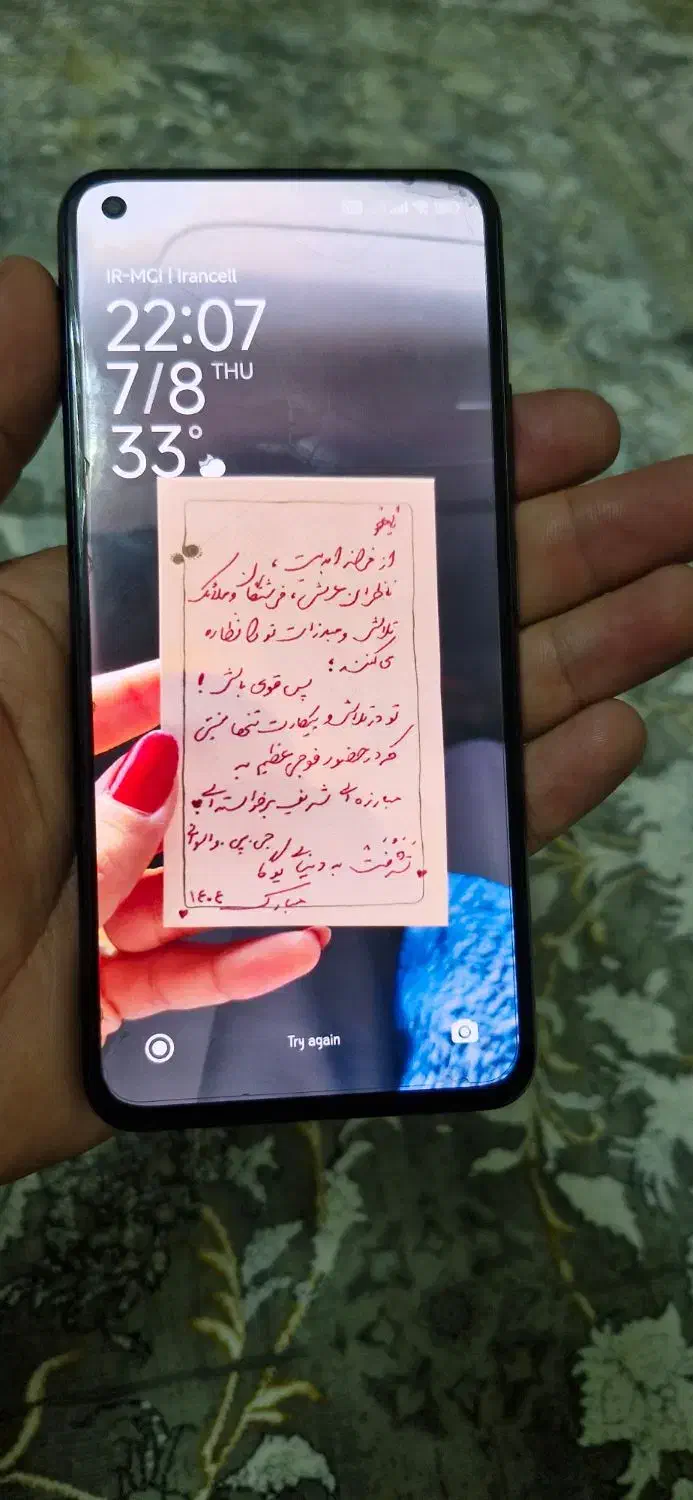 IR-MCI | Irancell
22:07
7/8 THU
33°
از فراز ابدیت ،
ناظران عرش ، فرشتگان و ملائک
تلاش و مبارزات تو را نظاره
می کنند ؛
پس قوی باش !
تو در تلاش و پیکارت تنها نیستی
که در حضور فوجی عظیم به
مبارزه ای شریف برخواسته ای
جی.پی.واسوانی
تشرفت به دنیای یوگا
مبارک ۱۴۰۴
Try again